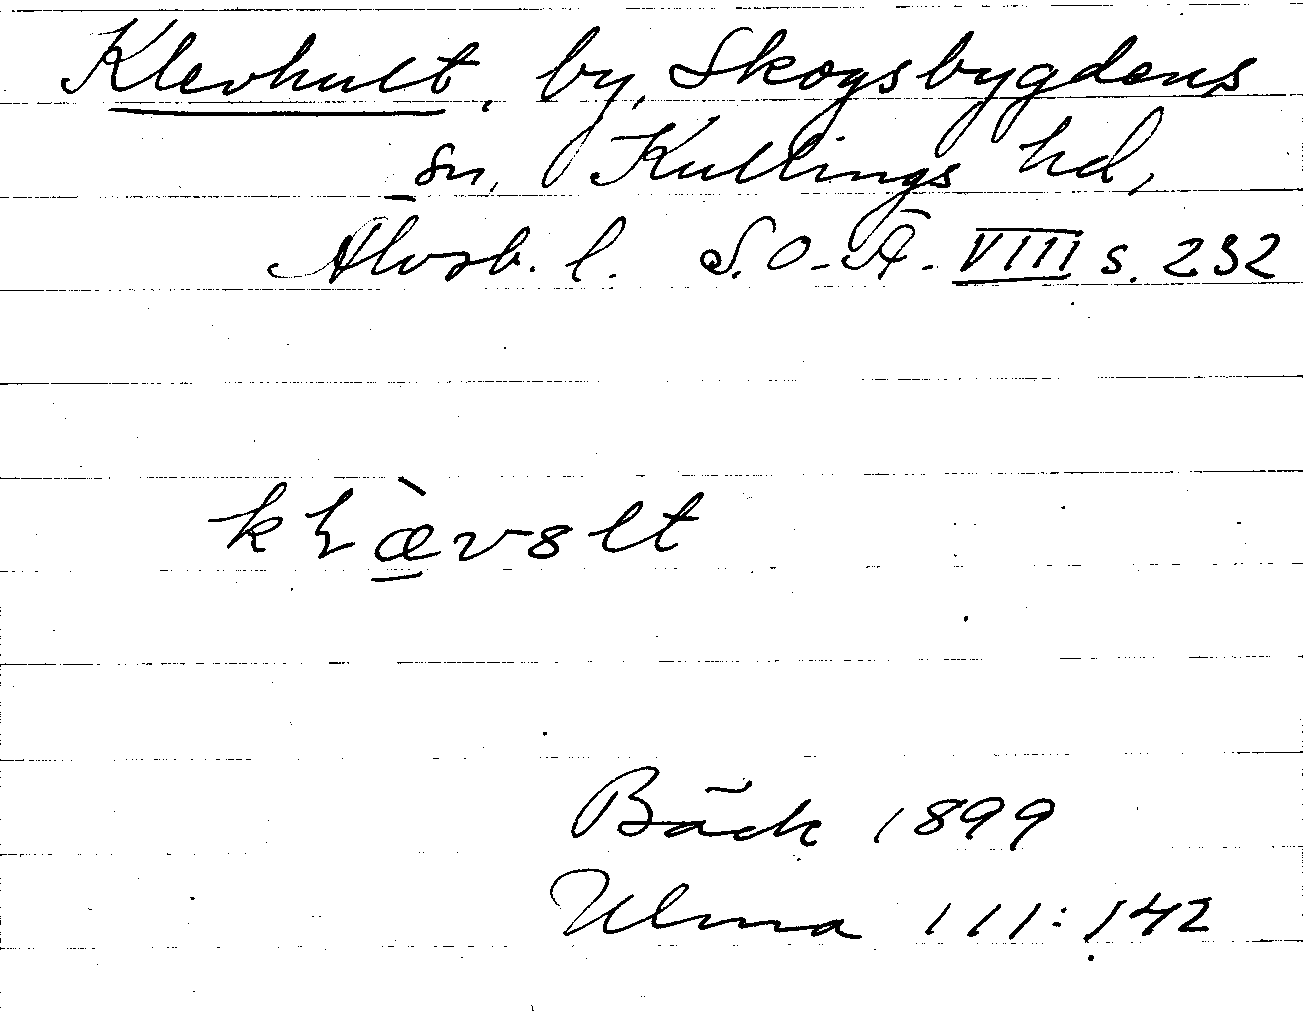 Klevhult, by, Skogsbygdens
sn, Kullings hd,
Älvsb. l. S.O.Ä. VIII s. 232
kɬæ̀vɵlt
Bäck 1899
Ulma 111:142